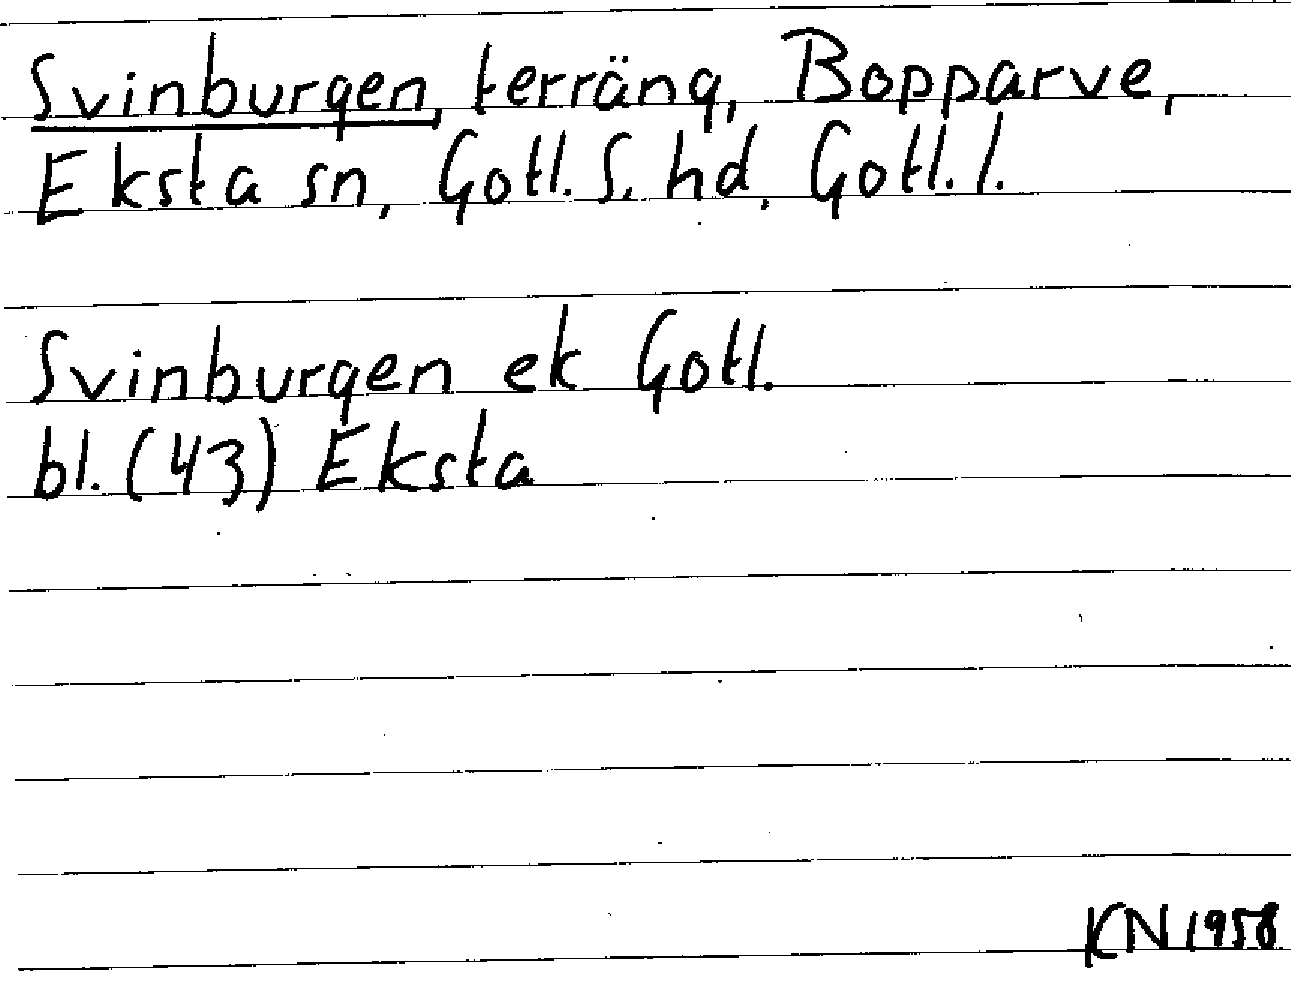 Svinburgen, terräng, Bopparve,
Eksta sn, Gotl. S. hd, Gotl. l.
Svinburgen ek Gotl.
bl. (43) Eksta
KN 1958